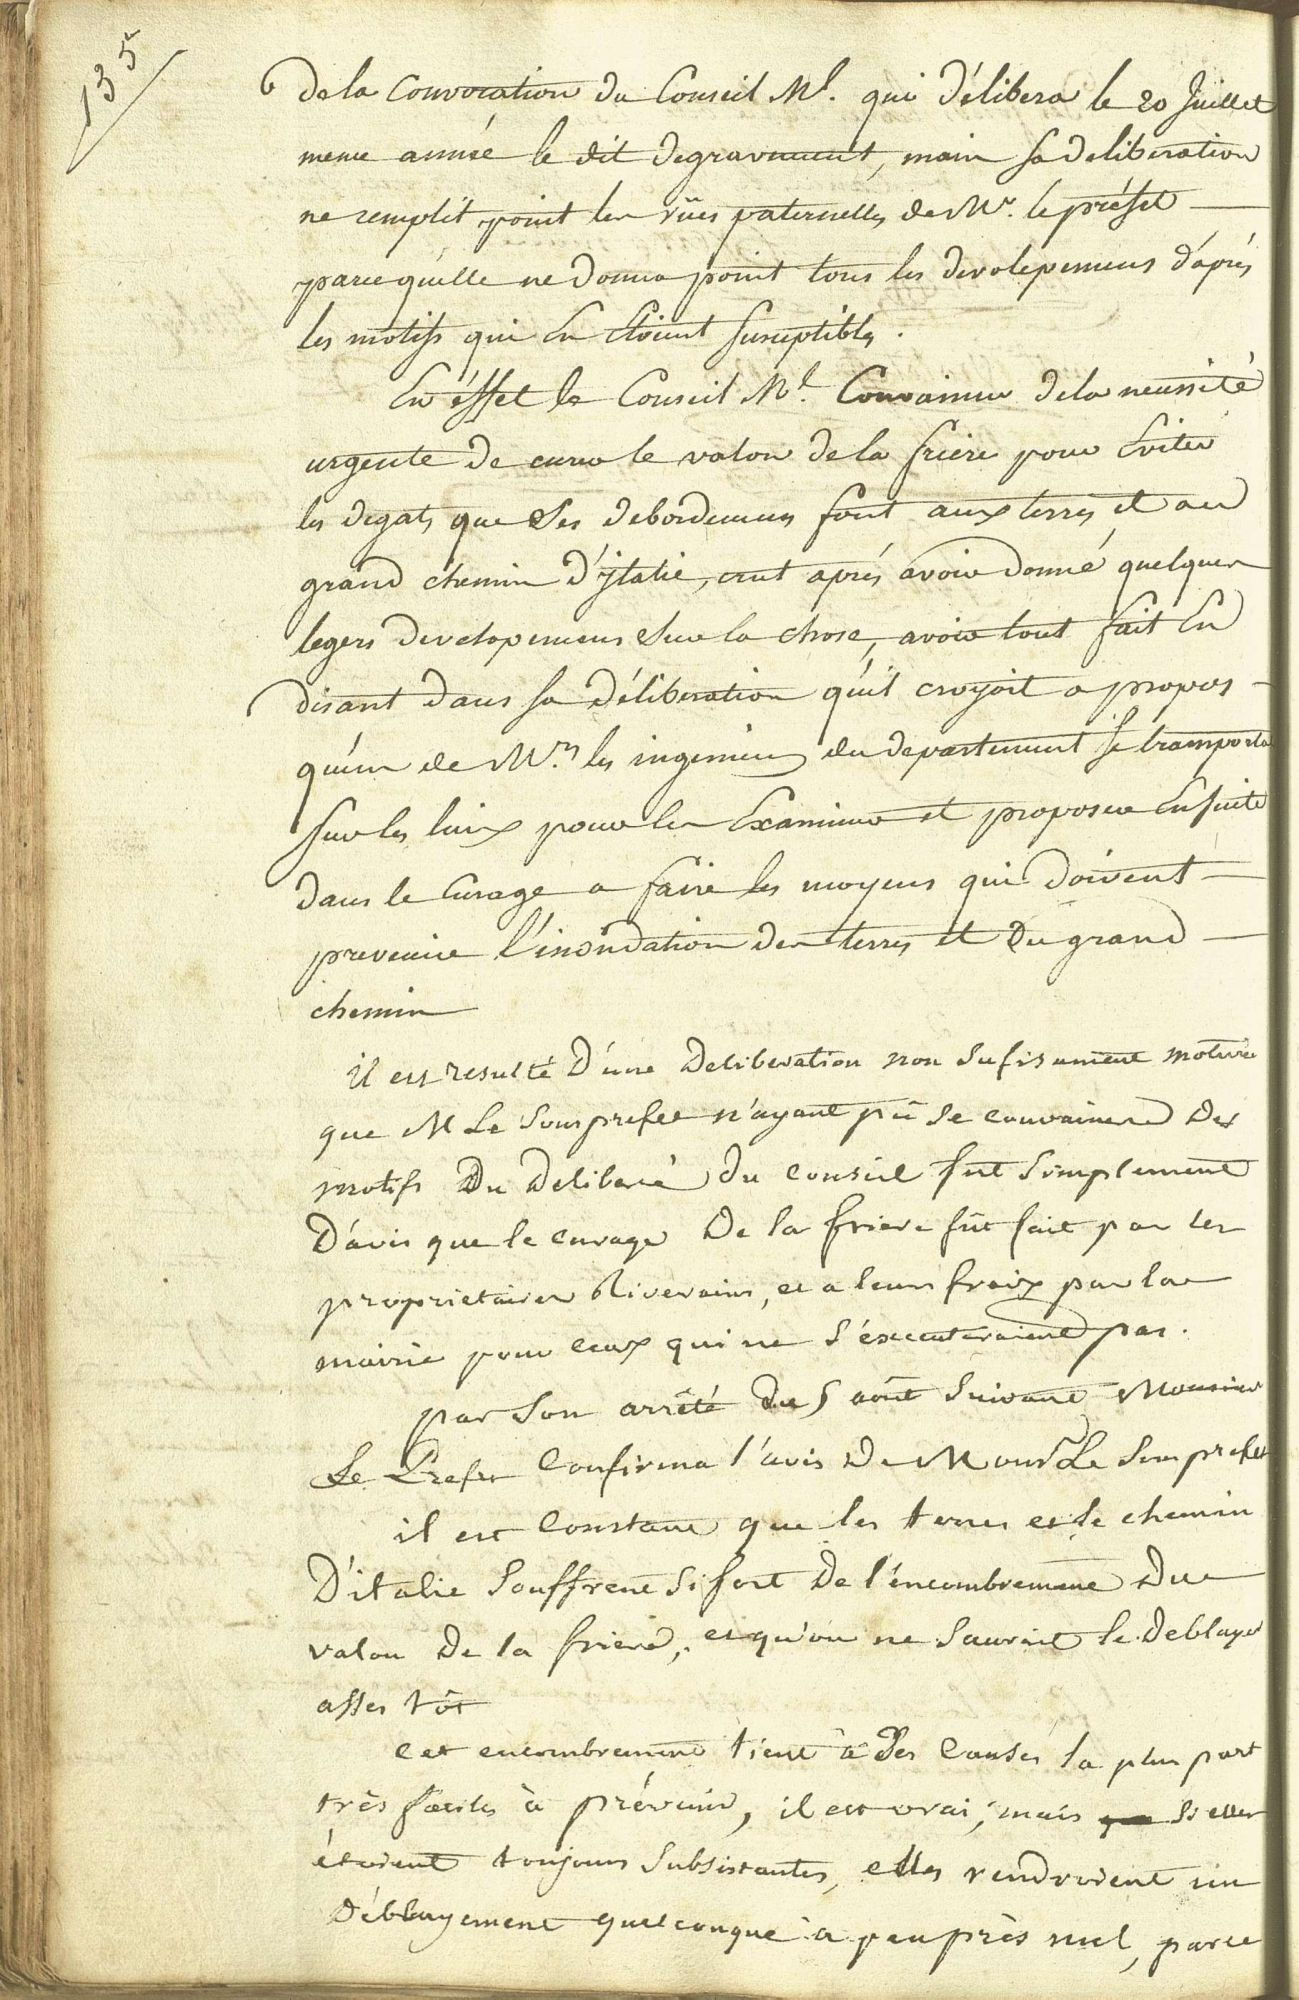 135
de la Convocation du Conseil Ml. qui délibera le 20 Juillet
meme année le dit degravement, mais sa deliberation
ne remplit point les vües paternelles de Mr. le préfet
parce qu'elle ne donna point tous les devolepemens d'aprés
les motifs qui En Etoient susceptibles.
En éffet le Conseil Ml. Convaincu de la necessité
urgente de curer le valon de la friere pour Eviter
les degats que Ses debordemens font aux terres et au
grand chemin d'jtalie, crut aprés avoir donné quelques
legers devclopemens Sur la chose, avoir tout fait En
disant dans sa déliberation qu'il croyoit a propos
qu'un de Mrs les ingenieurs du departement se transporta
sur les lieux pour les Examiner et proposer Ensuite
dans le Curage a faire les moyens qui doivent
prevenir l'inondation des terres et Du grand
chemin
il est resulté D'une Deliberation non sufisament motivée
que M Le Sousprefet n'ayant pû se convaincre Des
motifs Du Deliberé Du conseil fut Simplement
D'avis que le curage De la friere fût fait par les
proprietaires Riverains, et a leurs fraix par la
mairie pour ceux qui ne s'éxecuteraient pas.
par Son arrêté du 5 août Suivant Monsieur
Le Prefet Confirma l'avis De Monsr Le Sousprefet
il est Constant que les terres et le chemin
D'italie Souffrent Si fort De l'encombrement Du
valon De la friere, et qu'on ne Sauroit le Deblayer
asses tôt
Cet encombrement tient à Des Causes la plus part
très faciles à prévenir, il est vrai, mais si elles
étoient toujours Subsistantes, elles rendroient un
Déblayement quelconque à peuprès nul, parce